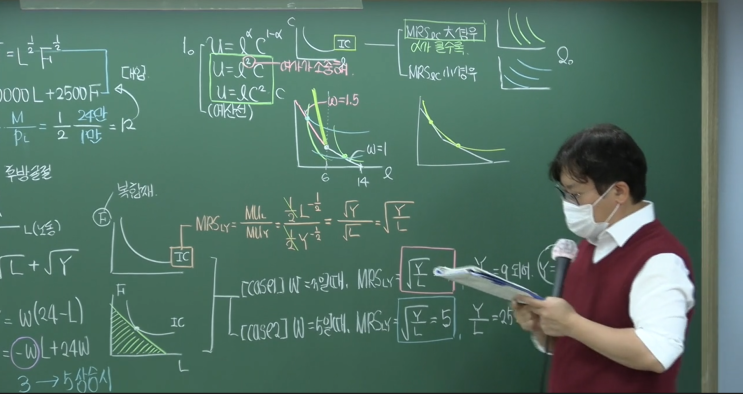 = L^{1/2} F^{1/2}
[대입]
0000L + 2500F
M/P_L = 1/2 24만/1만 = 12
후방굴절
L(노동)
√L + √Y
= W(24-L)
= -WL + 24W
3 → 5 상승시
1。
U = l^α C^{1-α}
U = l^2 C
U = l C^2
(예산선)
여가가 소중해
C
IC
MRS_{lC} 大 경우
α가 클수록
MRS_{lC} 小 경우
2。
C
W = 1.5
W = 1
6
14
l
복합재
F
IC
MRS_{LY} = MU_L/MU_Y = ½L^{-½}/½Y^{-½} = √Y/√L = √(Y/L)
[case1] W = 3일때, MRS_{LY} = √(Y/L)
Y = 9 되어, Y =
[case2] W = 5일때, MRS_{LY} = √(Y/L) = 5, Y/L = 25
F
IC
L